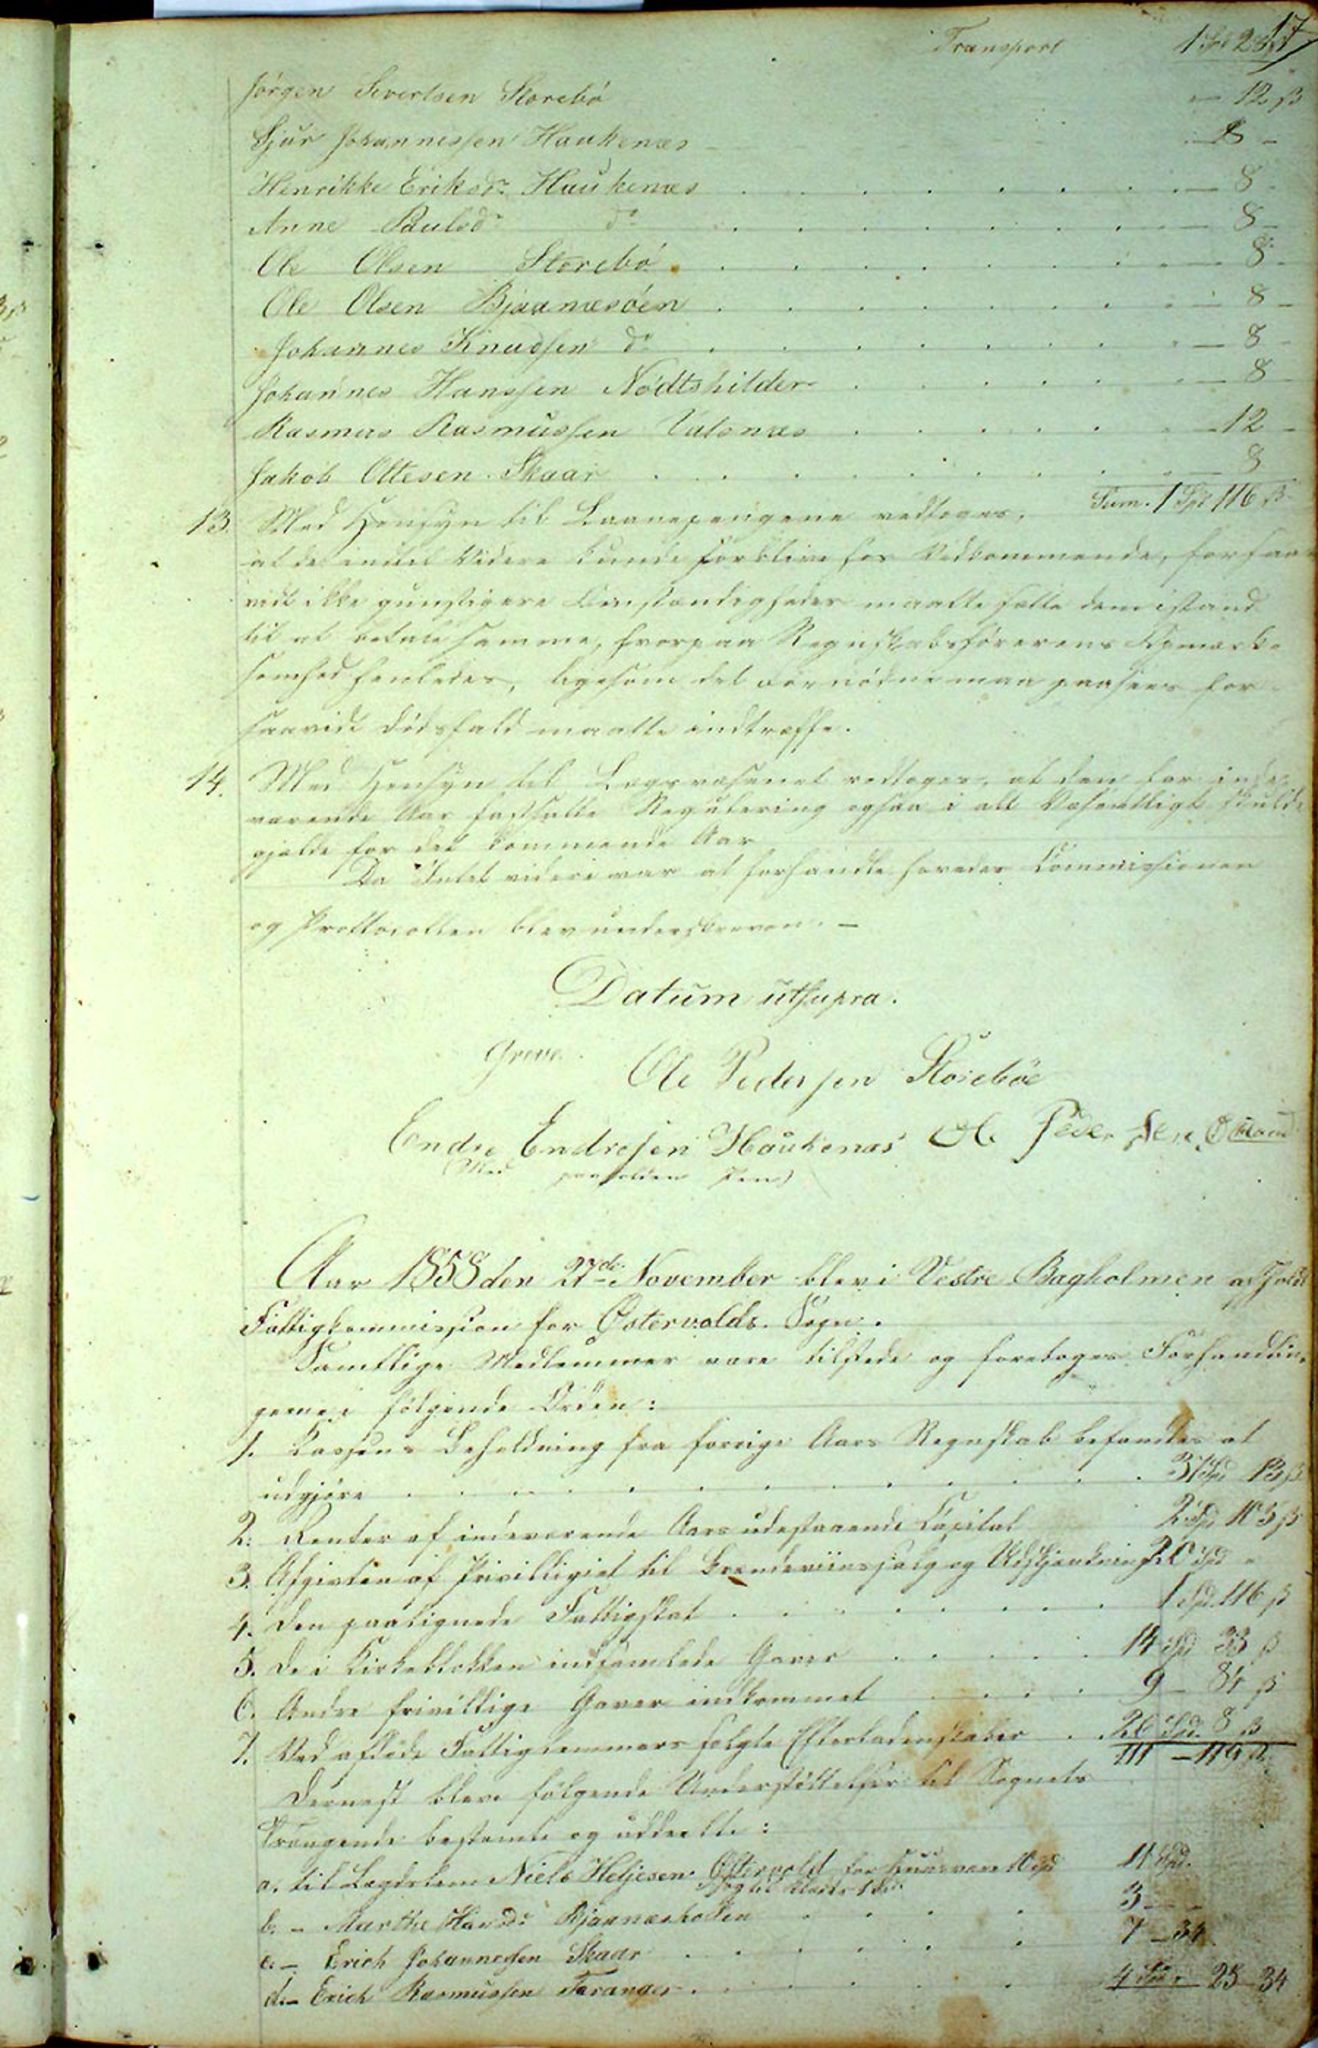 17
Transport 1 Spd 28 ß
Jørgen Sivertsen Storebø — 12 ß
Sjur Johannessen Haukenæs — 8 -
Henrikke Eriksdr Haukenæs — 8 -
Anne Paulsdr do — 8 -
Ole Olsen Storebø — 8 -
Ole Olsen Bjaanæsøen — 8 -
Johannes Knudsen do — 8 -
Johannes Hanssen Nødtshilder — 8
Rasmus Rasmussen Valsnæs — 12 -
Jakob Ottesen Skaar — 8
Sum. 1 Spd 116 ß
13. Med Hensyn til Laanepengene vedtoges,
at de indtil Videre kunde forblive hos Vedkommende, forsaa-
vidt ikke gunstigere Omstændigheder maatte sætte dem istand
til at betale samme, hvorpaa Regnskabsførerens Opmærk-
somhed henledes, ligesom det fornødne maa paasees for-
saavidt Dødsfald maatte indtræffe.
14. Med Hensyn til Lægsvæsenet vedtoges, at den for inde-
værende Aar fastsatte Regulering ogsaa i alt Væsentligt skulde
gjælde for det kommende Aar
Da Intet videre var at forhandle hævedes Commissionen
og Protocollen blev underskreven. —
Datum utsupra.
Greve. Ole Pedersen Storebøe
Endre Endresen Haukenæs Ole Pedersen
(Med paaholden Pen)
Aar 1858 den 27de November blev i Vestre Bagholmen afholdt
Fattigkommission for Østervolds Sogn.
Samtlige Medlemmer vare tilstede og foretoges Forhandlin-
gerne i følgende Orden:
1. Kassens Beholdning fra forrige Aars Regnskab befandtes at
udgjøre 37 Spd 13 ß
2. Renter af indeværende Aars udestaaende Capital 2 Spd 105 ß
3. Afgivten af Privilligiet til Brændeviinssalg og Udskjænkning 20 Spd -
4. Den paalignede Fattigskat 1 Spd 116 ß
5. De i Kirkeblokken indsamlede Gaver 14 Spd 33 ß
6. Andre frivillige Gaver indkommet 9 — 84 ß
7. Ved afdøde Fattiglemmers solgte Efterladenskaber 26 Spd. 8 ß
111 — 119 ß
Dernæst bleve følgende Understøttelser til Sognets
Trængende bestemte og uddeelte:
a. til Lægdslem Niels Heljesen Østervold for Huusvære 10 Spd 11 Spd.
og til Klæder 1 Spd.
b. - Marthe Hansdr Bjaanæsholten 3 —
c. - Erich Johannessen Skaar 7 — 34
d. - Erich Rasmussen Faranger 4 Spd. 25 — 34